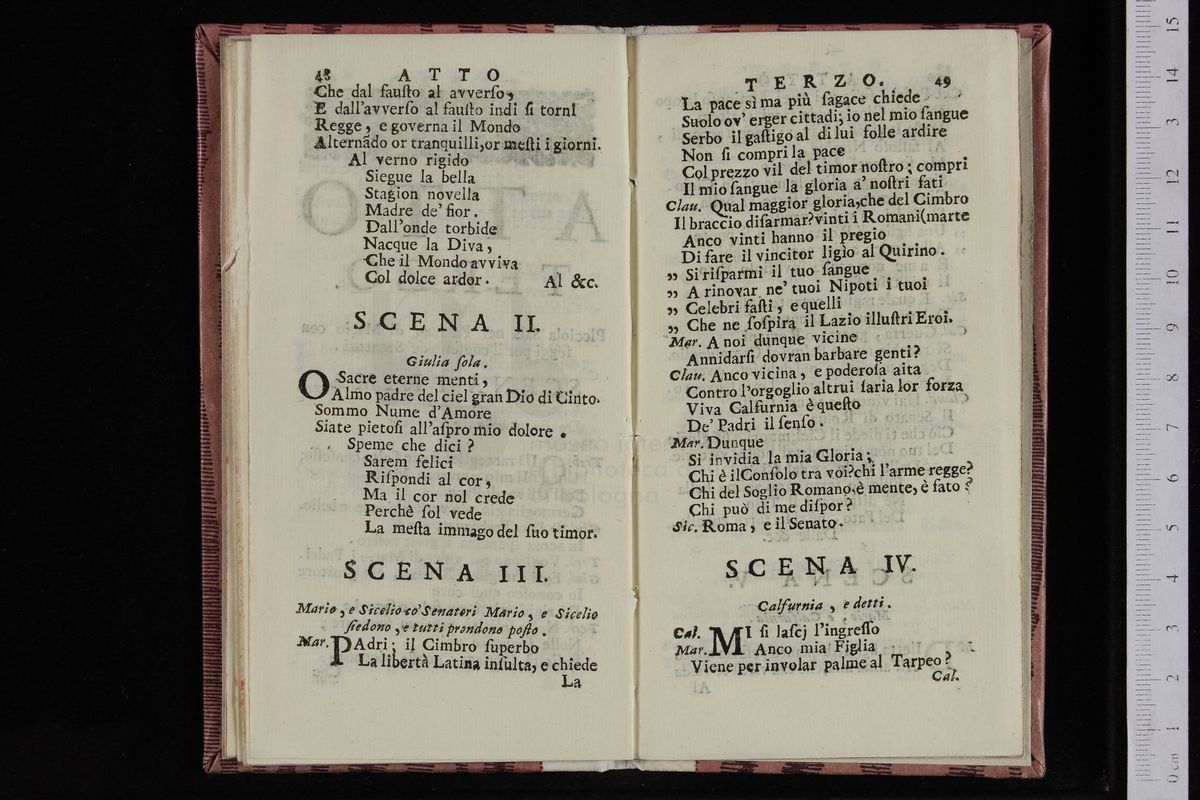 48 ATTO
Che dal fauſto al avverſo,
E dall'avverſo al fauſto indi ſi tornI
Regge, e governa il Mondo
Alternãdo or tranquilli,or meſti i giorni.
Al verno rigido
Siegue la bella
Stagion novella
Madre de' fior.
Dall'onde torbide
Nacque la Diva,
Che il Mondo avviva
Col dolce ardor. Al &c.
SCENA II.
Giulia ſola.
O Sacre eterne menti,
Almo padre del ciel gran Dio di Cinto.
Sommo Nume d'Amore
Siate pietoſi all'aſpro mio dolore.
Speme che dici?
Sarem felici
Riſpondi al cor,
Ma il cor nol crede
Perchè ſol vede
La meſta immago del ſuo timor.
SCENA III.
Mario, e Sicelio co'Senatori Mario, e Sicelio
ſiedono, e tutti prendono poſto.
Mar. PAdri; il Cimbro ſuperbo
La libertà Latina inſulta, e chiede
La
TERZO. 49
La pace sì ma più ſagace chiede
Suolo ov' erger cittadi; io nel mio ſangue
Serbo il gaſtigo al di lui folle ardire
Non ſi compri la pace
Col prezzo vil del timor noſtro; compri
Il mio ſangue la gloria a' noſtri fati
Clau. Qual maggior gloria,che del Cimbro
Il braccio diſarmar?vinti i Romani(marte
Anco vinti hanno il pregio
Di fare il vincitor ligio al Quirino.
„ Si riſparmi il tuo ſangue
„ A rinovar ne' tuoi Nipoti i tuoi
„ Celebri faſti, e quelli
„ Che ne ſoſpira il Lazio illuſtri Eroi.
Mar. A noi dunque vicine
Annidarſi dovran barbare genti?
Clau. Anco vicina, e poderoſa aita
Contro l'orgoglio altrui ſaria lor forza
Viva Calfurnia è queſto
De' Padri il ſenſo.
Mar. Dunque
Si invidia la mia Gloria;
Chi è ilConſolo tra voi?chi l'arme regge?
Chi del Soglio Romano.è mente, è fato?
Chi può di me diſpor?
Sic. Roma, e il Senato.
SCENA IV.
Calfurnia, e detti.
Cal. MI ſi laſcj l'ingreſſo
Mar. Anco mia Figlia
Viene per involar palme al Tarpeo?
Cal.